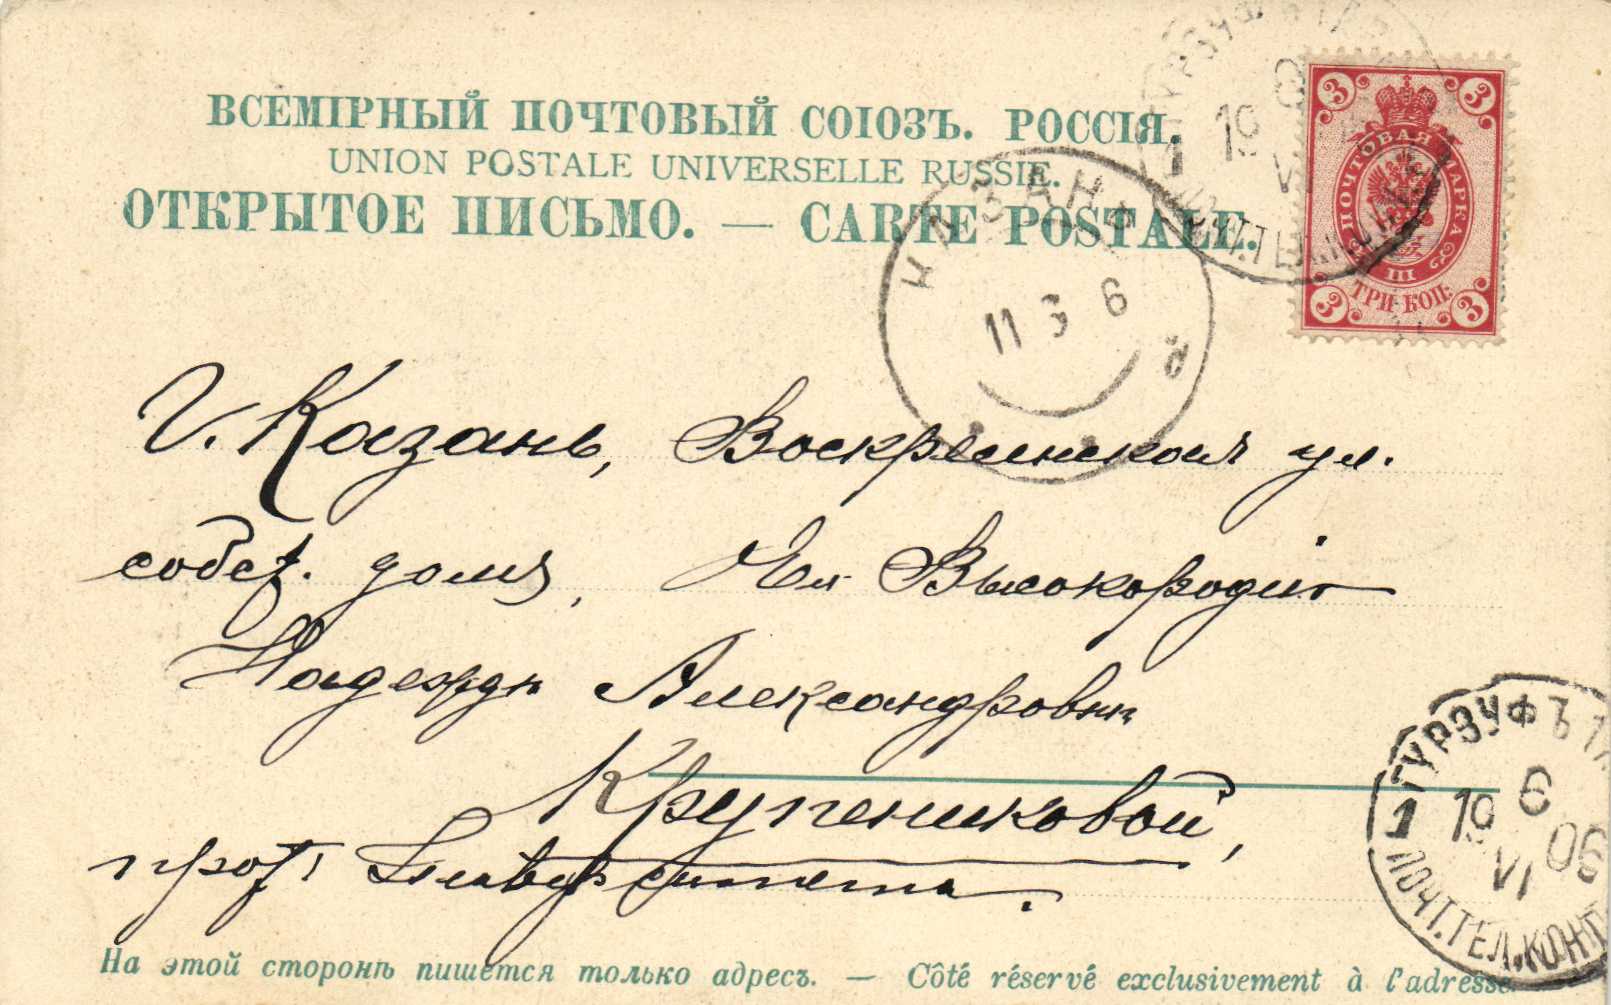 ВСЕМІРНЫЙ ПОЧТОВЫЙ СОЮЗЪ. РОССІЯ.
UNION POSTALE UNIVERSELLE RUSSIE.
ОТКРЫТОЕ ПИСЬМО. — CARTE POSTALE.
3 3
ПОЧТОВАЯ МАРКА
III
ТРИ КОП.
3 3
ГУРЗУФЪ
1 19 VI
ПОЧТ. ТЕЛ. КОН
КАЗАНЬ
11 6 6
Г. Казань, Воскресенская ул.
собст. домъ, Ея Высокородію
Надеждѣ Александровнѣ
Крупениковой,
прот. Университета.
ГУРЗУФЪ ТА
1 19 6 VI 06
ПОЧТ.ТЕЛ.КОНТ
На этой сторонѣ пишется только адресъ. — Côté réservé exclusivement à l'adresse.